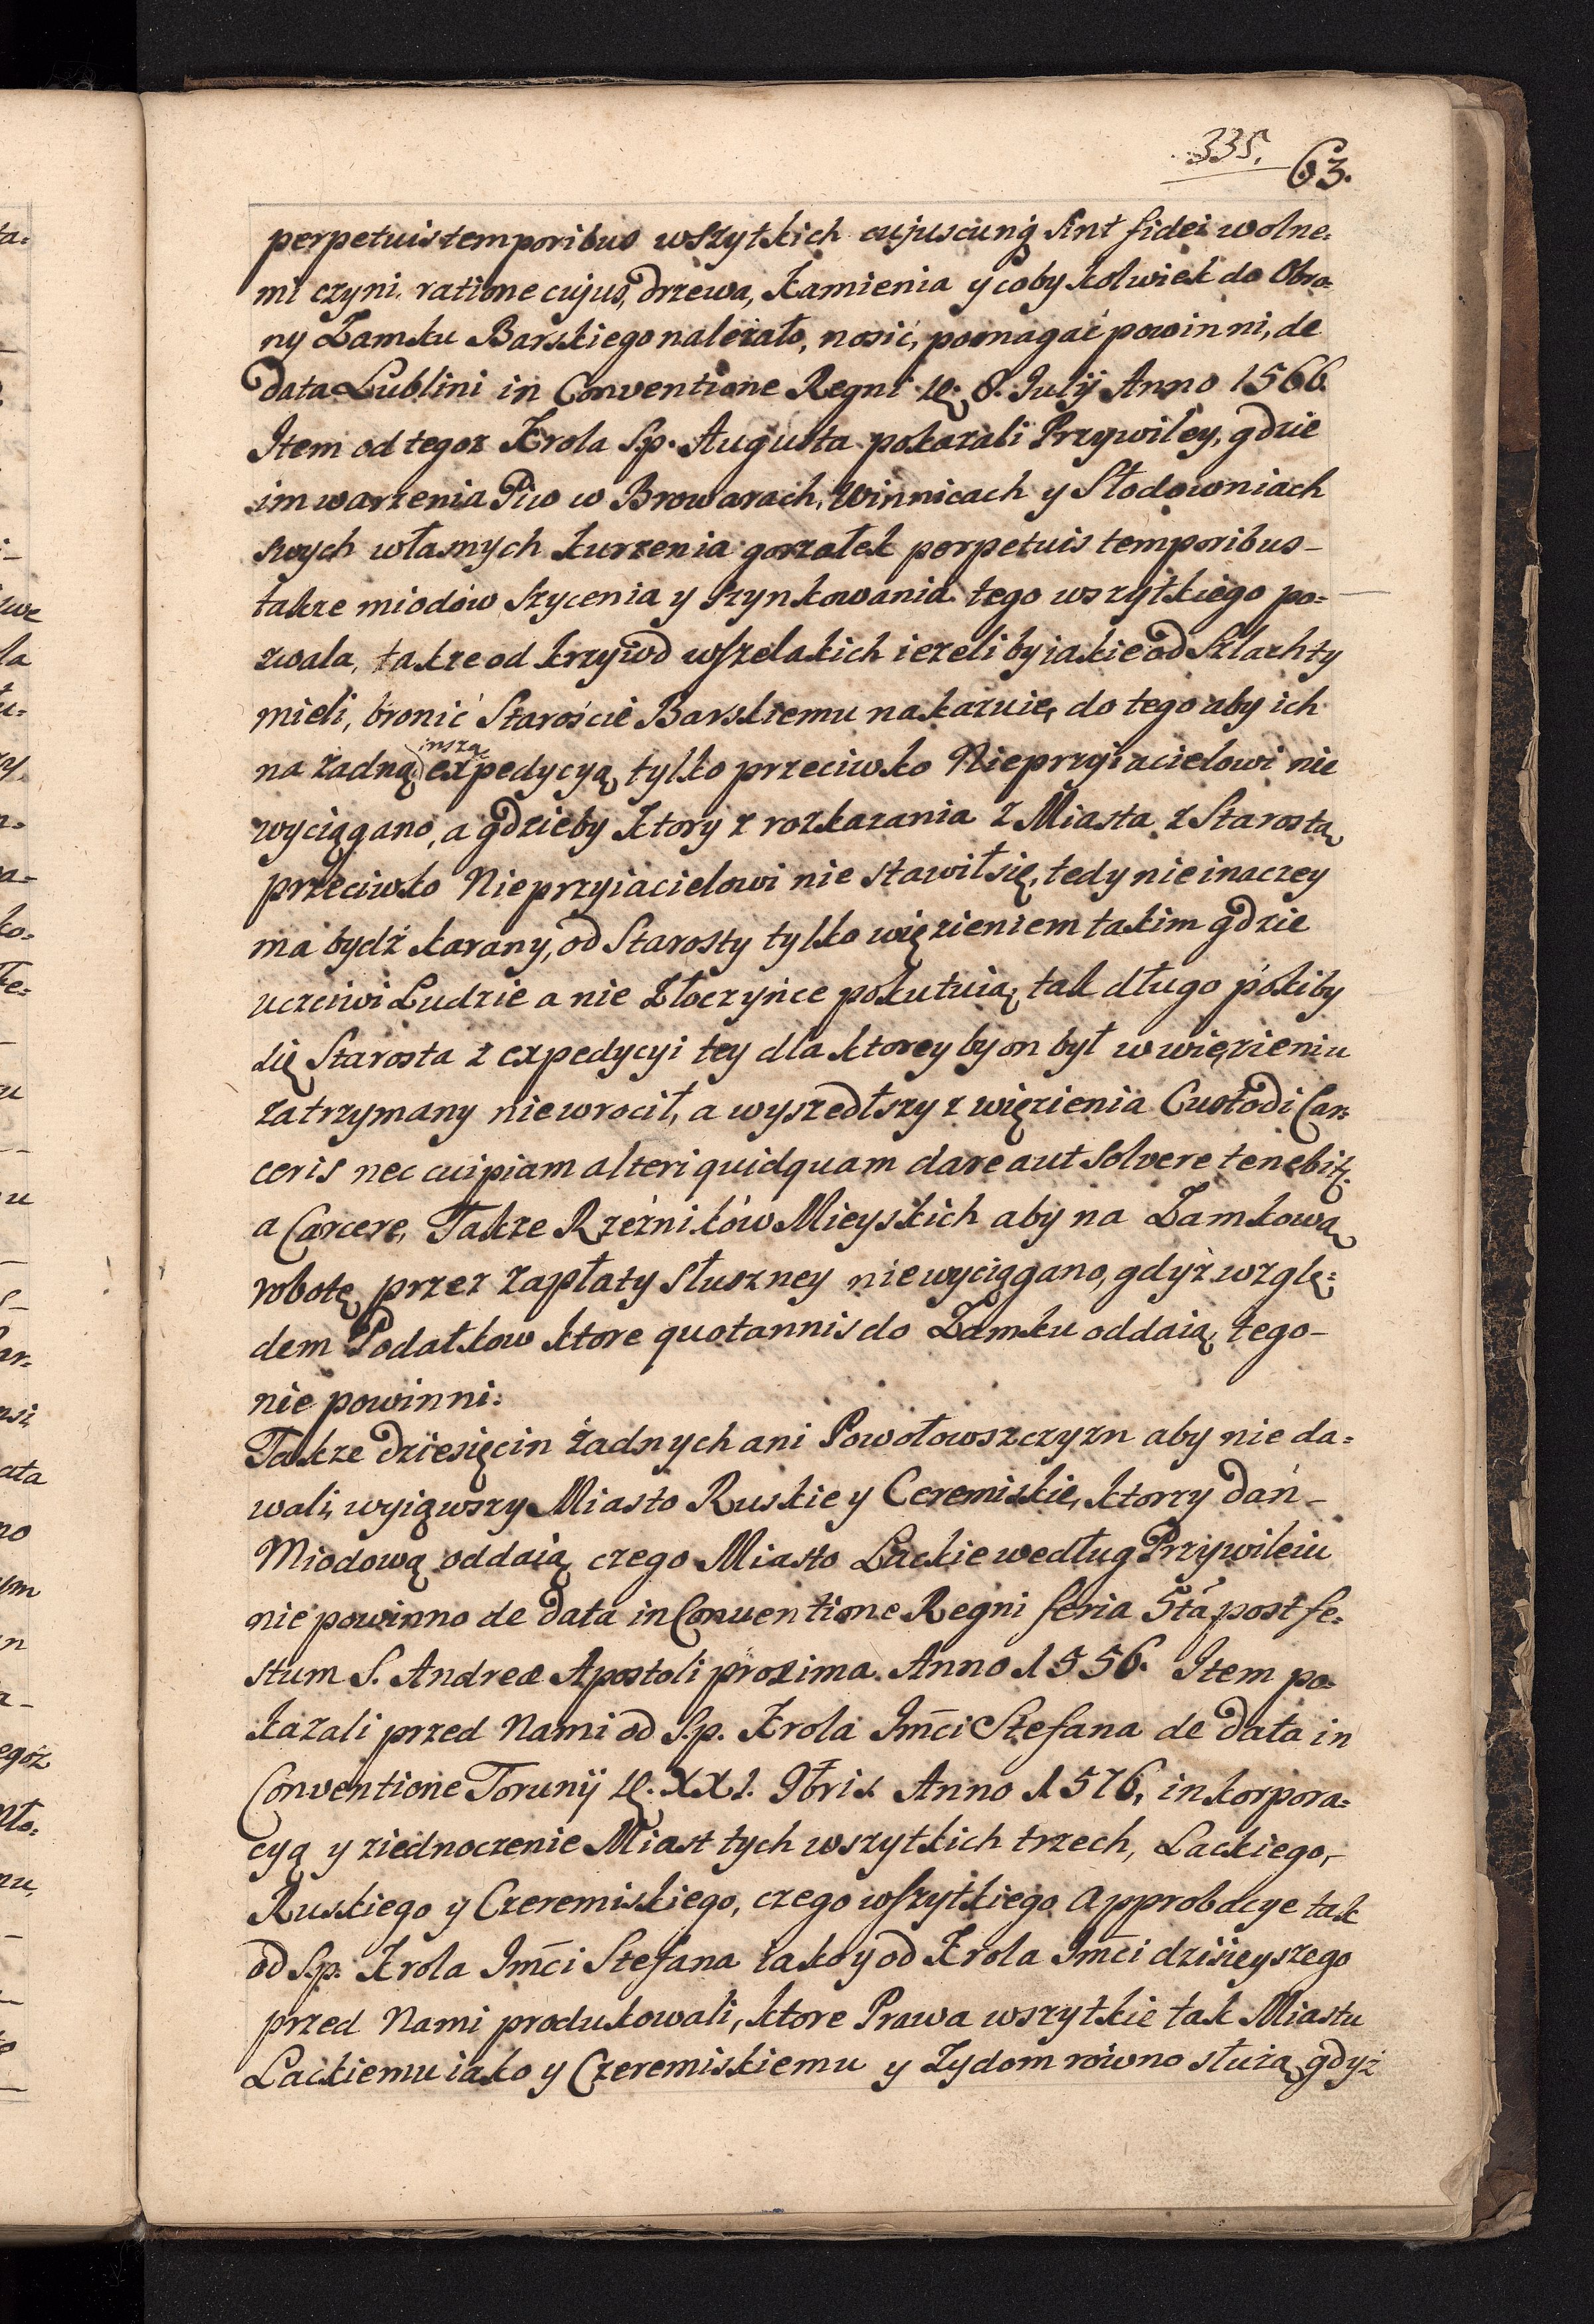 335.
63.
perpetuis temporibus wszytkich cujuscunq sint fidei wolne=
mi czyni, ratione cujus, drzewa, kamienia y coby kolwiek do Obro=
ny Zamku Barskiego należało, nosić, pomagać powinni, de
data Lublini in Conventione Regni 8. Julij Anno 1566.
Item od tegoz Krola S.p. Augusta pokazali Przywiley, gdzie
im warzenia Piw w Browarach, Winnicach y Słodowniach
swych własnych kurzenia gorzałek perpetuis temporibus_
także miodów sycenia y szynkowania tego wszytkiego po=
zwala, także od krzywd wszelakich ieżeliby iakie od Szlachty
mieli, bronić Staroście Barskiemu nakazuie, do tego aby ich
na żadną inszą expedycyą tylko przeciwko Nieprzyiacielowi nie
wyciągano, a gdzieby ktory z rozkazania z Miasta z Starostą
przeciwko Nieprzyiacielowi nie stawił się, tedy nie inaczey
ma bydź karany, od Starosty tylko więzieniem takim gdzie
uczciwi Ludzie a nie Złoczyńce pokutuią tak długo pókiby
się Starosta z expedycyi tey dla ktorey by on był w więzieniu
zatrzymany niewrocił, a wyszedłszy z więzienia Custodi Car=
ceris nec cuipiam alteri quidquam dare aut solvere tenebit.
a Carcere, Także Rzeźników Mieyskich aby na Zamkową
robotę przez zapłaty słuszney niewyciągano, gdyż wzglę=
dem Podatkow ktore quotannis do Zamku oddaią tego_
nie powinni.
Także dziesięcin żadnych ani Powołowszczyzn aby nie da=
wali, wyiąwszy Miasto Ruskie y Ceremiskie, ktorzy dań_
Miodową oddaią czego Miasto Lackie według Przywileiu
nie powinno de data in Conuentione Regni feria 5tá post fe=
stum S. Andreæ Apostoli proxima. Anno 1556. Item po=
kazali przed Nami od S.p. Krola Jm̄ci Stefana de data in
Conventione Torunij XXI. 9bris Anno 1576, inkorpora=
cyą y ziednoczenie Miast tych wszytkich trzech, Lackiego,_
Ruskiego y Czeremiskiego, czego wszytkiego Approbacye tak
od S.p. Krola Jm̄ci Stefana iako y od Krola Jm̄ci dzisieyszego
przed Nami produkowali, ktore Prawa wszytkie tak Miastu
Lackiemu iako y Czeremiskiemu y Żydom równo służą gdyż